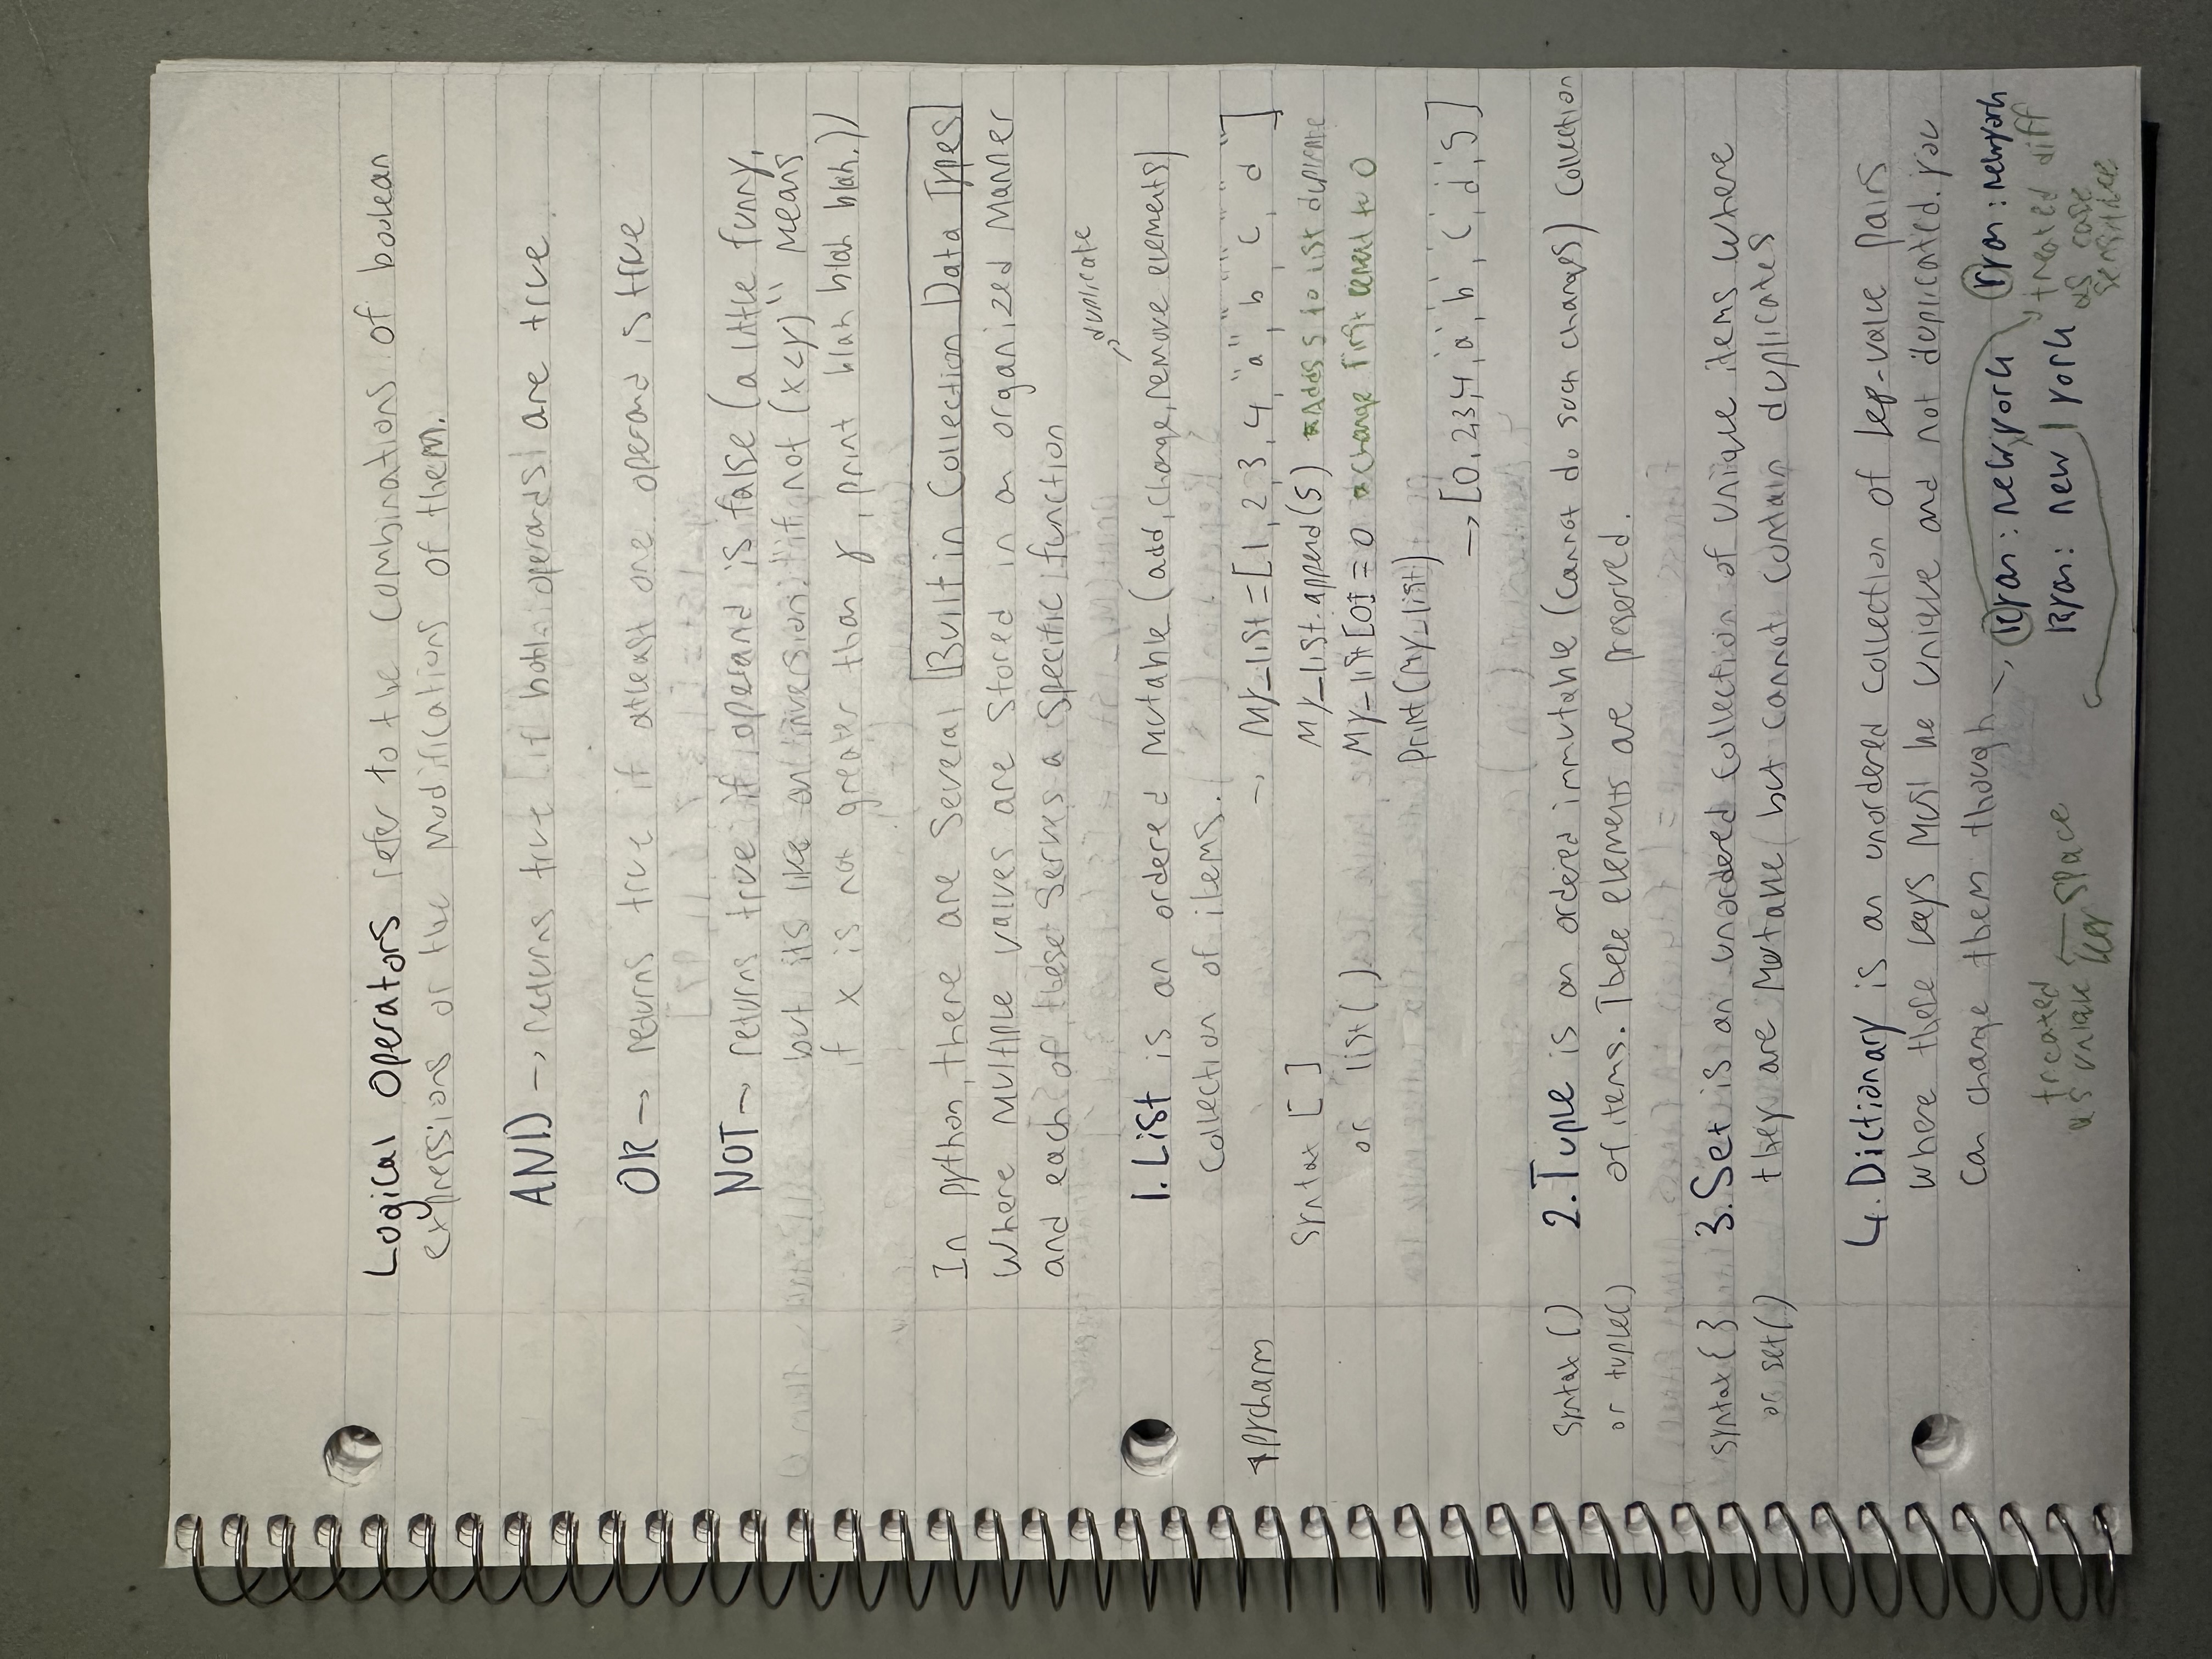 Logical Operators refer to the combinations of boolean
expressions or the modifications of them.
AND → returns true if both operands are true
OR → returns true if atleast one operand is true
NOT → returns true if operand is false (a little funny,
but its like an inversion. "if not (x<y)" means
if x is not greater than y, print blah blah blah.))
In python, there are several Built in Collection Data Types
where multiple values are stored in an organized manner
and each of these serves a specific function
duplicate
1. List is an ordered mutable (add, change, remove elements)
collection of items.
pycharm
→ My_list = [1, 2, 3, 4, "a", "b", "c", "d"]
syntax [ ]
My_list.append(5) Adds 5 to list duplicate
or list( )
My_list[0] = 0 change first element to 0
Print(My_list)
→ [0, 2,3,4, 'a', 'b', 'c', 'd', 5]
syntax ( )
2. Tuple is an ordered immutable (cannot do such changes) collection
or tuple()
of items. These elements are preserved.
syntax { }
3. Set is an unordered collection of unique items where
or set( )
they are mutable but cannot contain duplicates
4. Dictionary is an unordered collection of key-value pairs
where these keys must be unique and not duplicated. you
can change them though
→ Ryan: newyork ryan: newyork
treated diff
as case
sensitive
Ryan: new york
space
key
treated
as unique